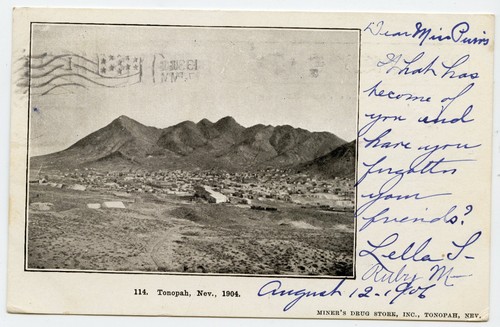 Dear Miss Purvis
What has
become of
you and
have you
forgotten
your
friends?
Lella S-
Ruby M-
August 12-1906
114. Tonopah, Nev., 1904.
MINER'S DRUG STORE, INC., TONOPAH, NEV.